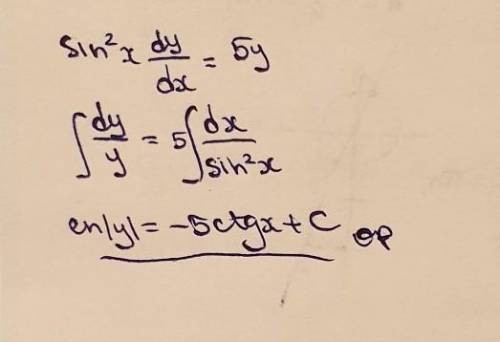 sin²x dy/dx = 5y
∫ dy/y = 5∫ dx/sin²x
ln|y| = -5ctgx + C ОР